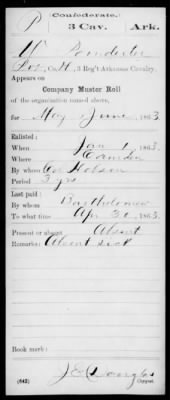 Confederate.
P 3 Cav. Ark.
W Poindexter
Co. H, 3 Reg't Arkansas Cavalry.
Appears on
Company Muster Roll
of the organization named above,
for May & June, 1863.
Enlisted:
When Jan 1, 186
Where Camden
By whom Hobson
Period 3 yrs
Last paid:
By whom Bartholomew
To what time Apr 30, 1863.
Present or absent Absent
Remarks: Absent sick
Book mark:
(642) J E Douglas
Copyist.